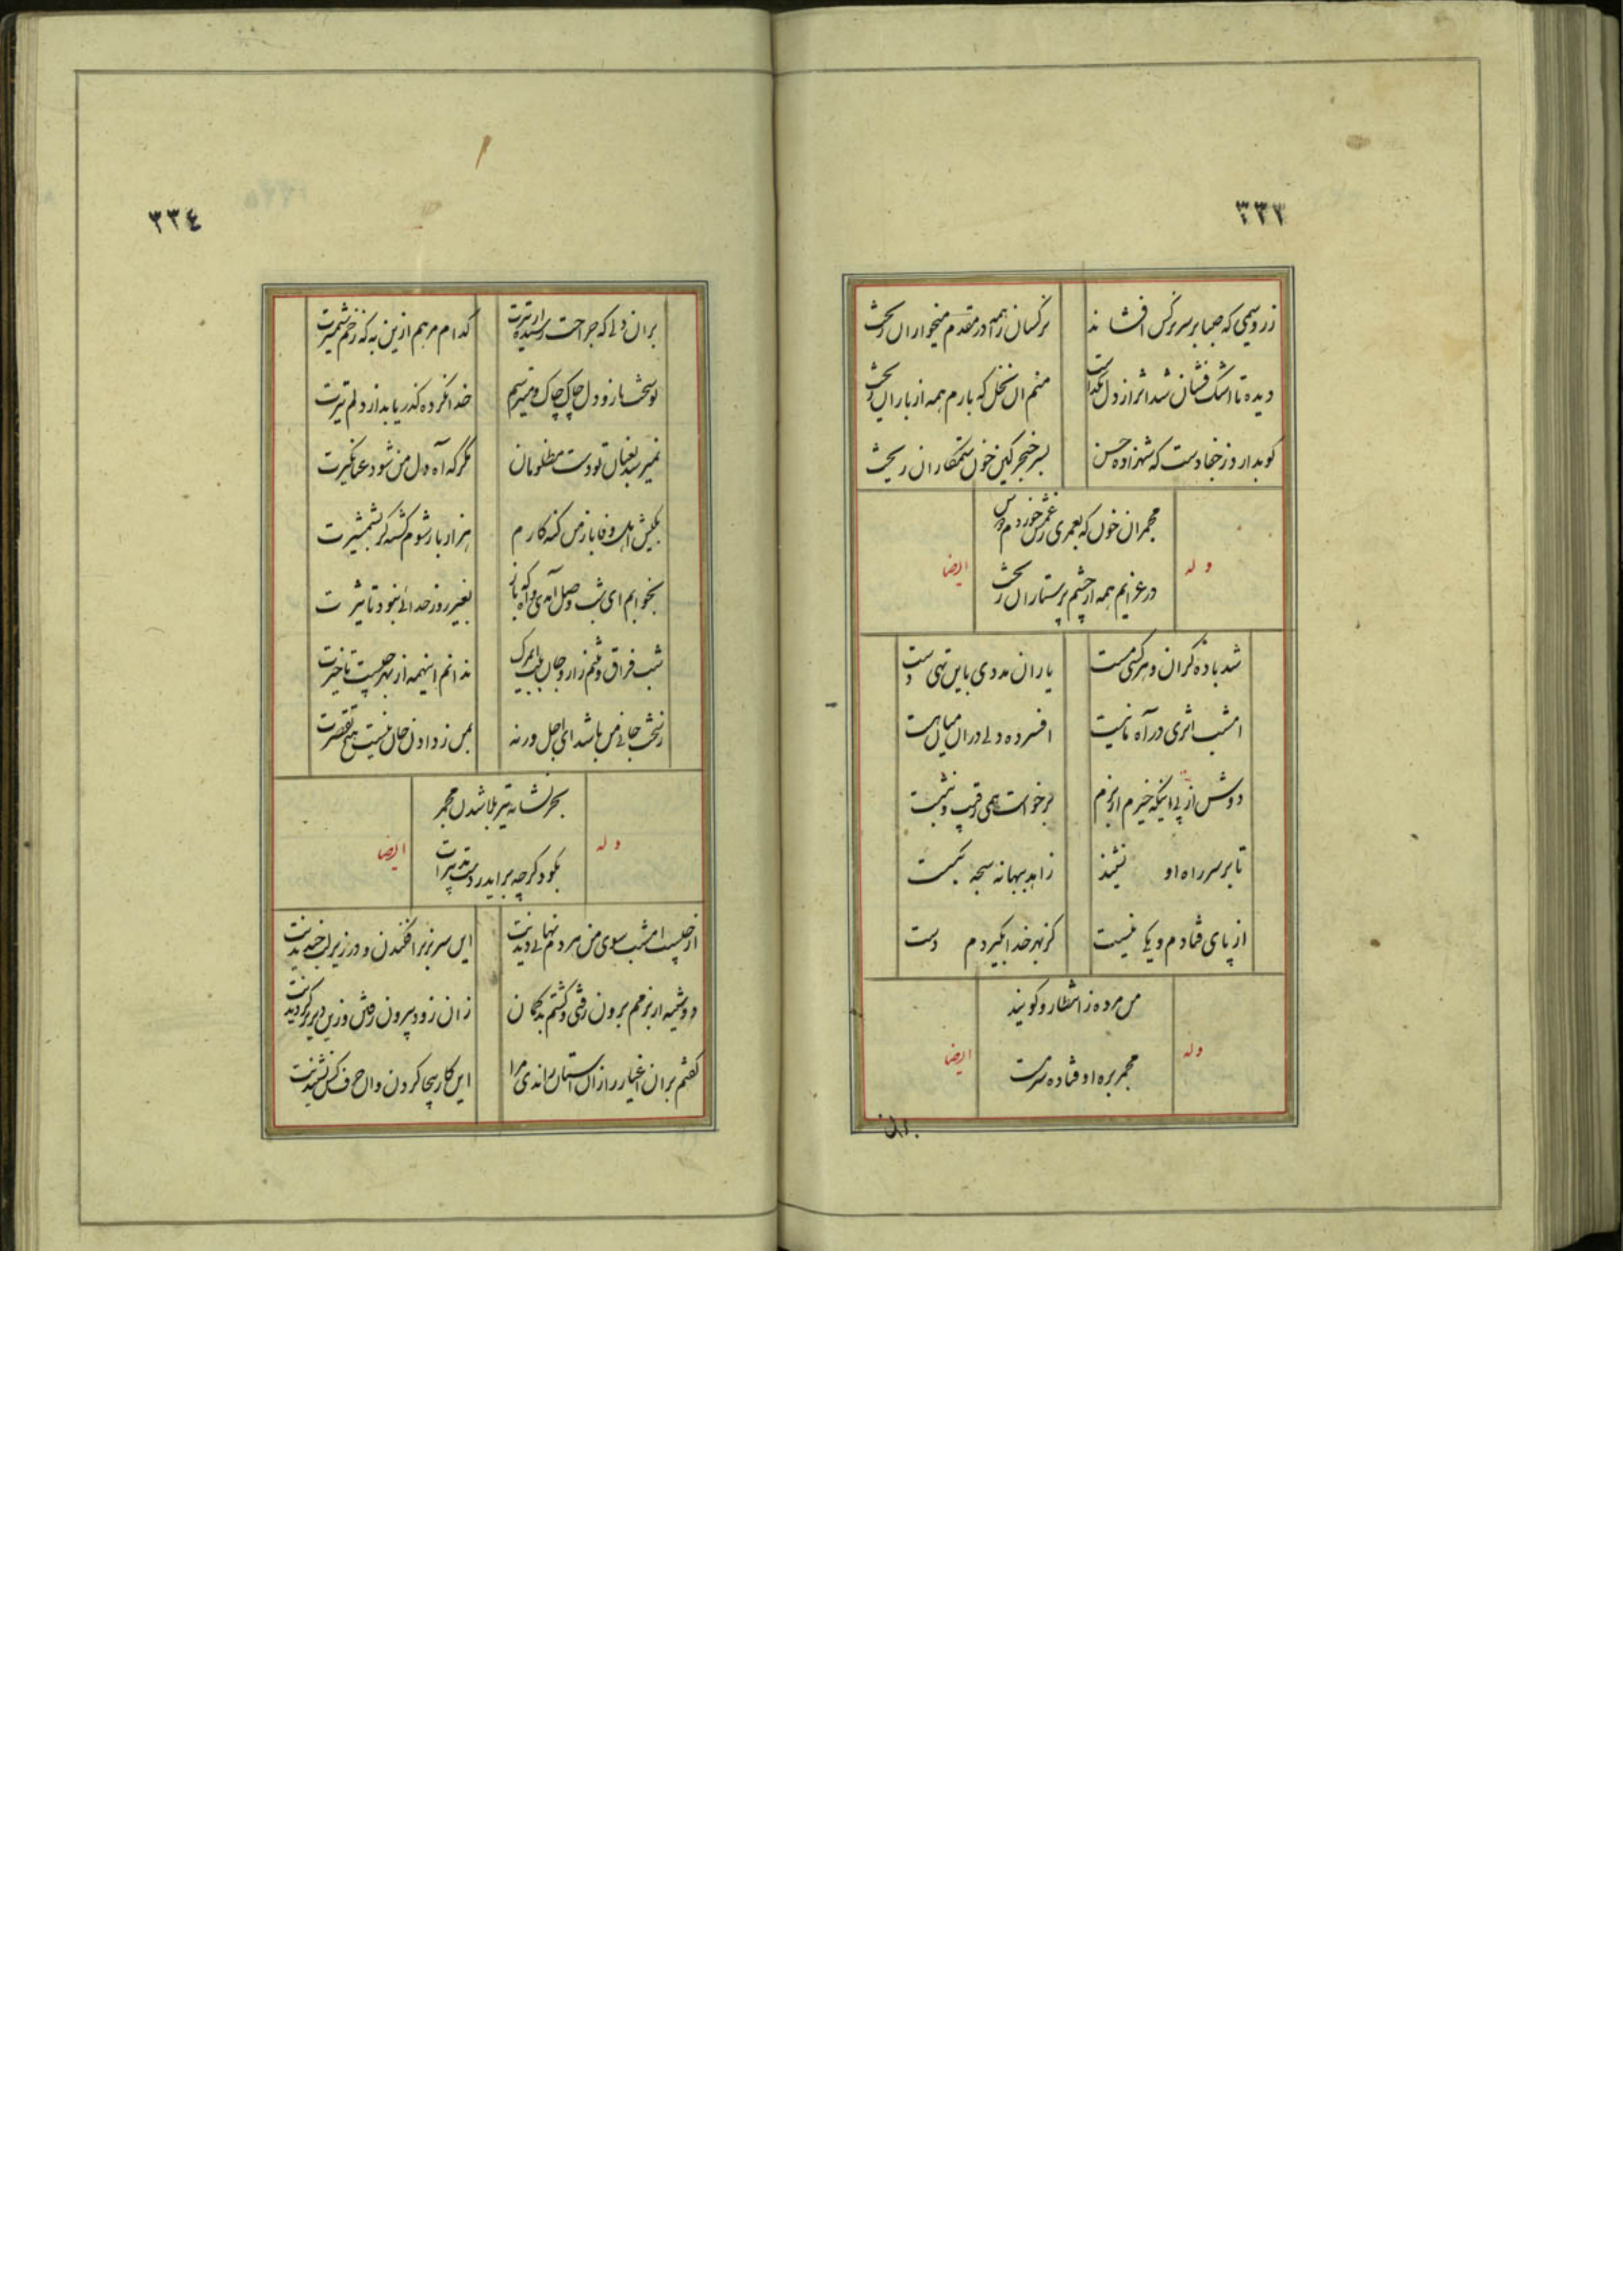 ۳۳۳
زر وسیمی که صبا بر سر نرکس افشا ند
نرکسان همه در مقدم میخواران ریخت
دیده تا اشک فشان شد اثر از دل نگذاشت
منم ان نخل که بارم همه از باران ریخت
کو بدار وز جفا دست که شهزاده حسن
بسر خنجر کین خون ستمکاران ریخت
مجمر ان خون که بعمری ز غمش خوردم
در غرایم همه از چشم پرستاران ریخت
وله
ایضا
شد باده کران و هر کسی مست
یاران مددی باین تهی دست
امشب اثری در آه ما نیست
افسرده دلی در ان میان هست
دوش از پی اینکه خیزم از بزم
برخواست همی رقیب و نشست
تا بر سر راه او نشیند
زاهد ببهانه سبحه بکسست
از پای فتادم و یکی نیست
کز بهر خدا بکیردم دست
من مرده ز انتظار و کویند
مجمر بره او فتاده سر مست
وله
ایضا
بران
۳۳٤
بران دلی که جراحت رسیده از تیرت
کدام مرهم ازین به که زخم شمشیرت
تو سخت بازو و دل چاک چاک و میترسم
خدا نکرده کذر یابد از دلم تیرت
نمیرسد بعنان تو دست مظلومان
مکر که آه دل من شود عنانکیرت
بکیش اهل وفا باز من کنه کارم
هزار بار شوم کشته کر بشمشیرت
بخوابم ای شب وصل آمدی و که باز
بغیر روز جدائی نبود تاثیرت
شب فراق و تنم زار و جان بلب ای مرک
ندانم اینهمه از بهر چیست تاخیرت
ز سخت جانی من باشد ای اجل ورنه
بمن ز دادن جان نیست هیچ تقصیرت
بجز نشانه تیر بلا شدن مجمر
بکو دکر چه براید ز دست تدبیرت
وله
ایضا
از چیست امشب سوی من هر دم نهانی دیدنت
این سر بزیر افکندن و در زیر لب خندیدنت
دوشینه از بزمم برون رفتی و کشتم بد کمان
زان زود بیرون رفتن و زین دیر بر کردیدنت
کفتم بران اغیار را از ان استان راندی مرا
این کار بیجا کردن و ان حرف کس نشنیدنت